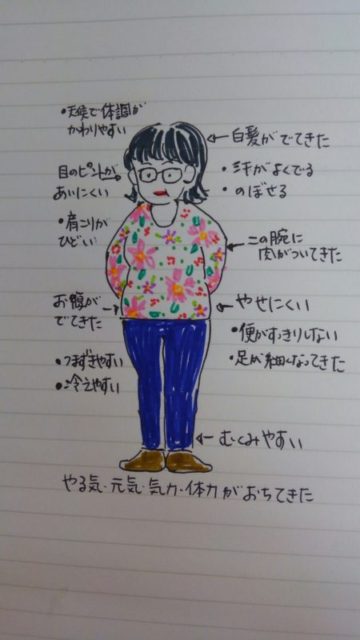 ・天候で体調が
かわりやすい
白髪がでてきた
目のピントが
あいにくい
・汗がよくでる
・のぼせる
・肩こりが
ひどい
この腕に
肉がついてきた
お腹が
でてきた
やせにくい
・便がすっきりしない
・足が細くなってきた
・つまずきやすい
・冷えやすい
むくみやすい
やる気・元気・気力・体力がおちてきた